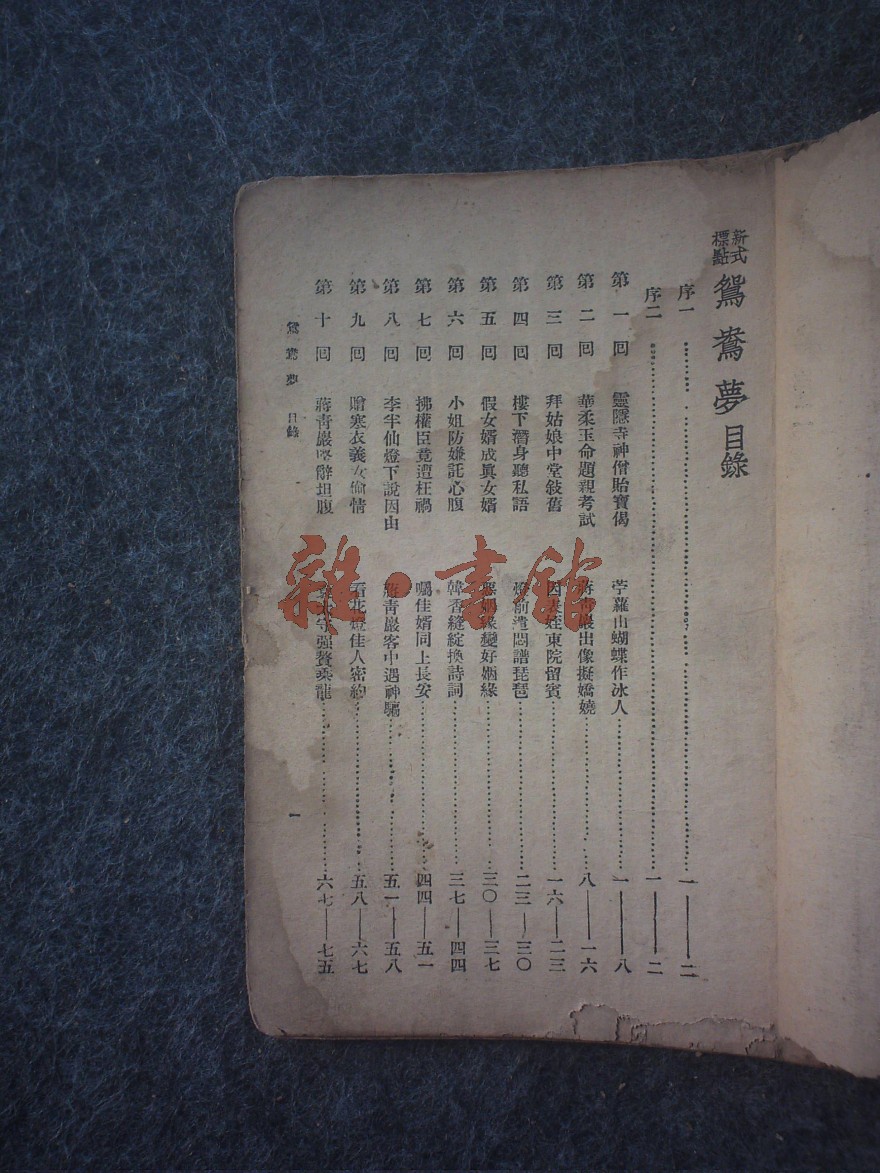 新式標點 鴛鴦夢目錄
序一 一——二
序二 一——二
第一回 靈隱寺神僧貽寶偈 苧蘿山蝴蝶作冰人 一——八
第二回 華柔玉命題親考試 蔣青巖出像擬嬌嬈 八——一六
第三回 拜姑娘中堂敍舊 因表姪東院留賓 一六——二三
第四回 樓下潛身聽私語 燈前遣悶譜琵琶 二三——三〇
第五回 假女婿成眞女婿 姻緣變好姻緣 三〇——三七
第六回 小姐防嫌託心腹 韓香縫綻換詩詞 三七——四四
第七回 拂權臣竟遭枉禍 囑佳婿同上長安 四四——五一
第八回 李半仙燈下說因由 蔣青巖客中遇神騙 五一——五八
第九回 贈寒衣義女偷情 看花燈佳人密約 五八——六七
第十回 蔣青巖堅辭坦腹 守强贅乘龍 六七——七五
鴛鴦夢 目錄
一
雜·書館